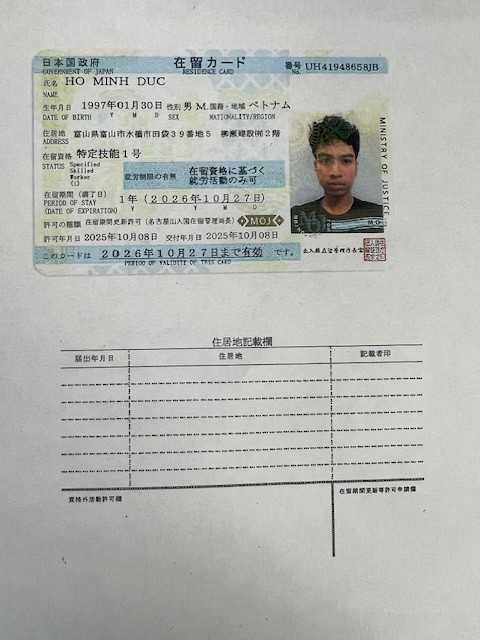 日本国政府 在留カード 番号 UH41948658JB
GOVERNMENT OF JAPAN RESIDENCE CARD No.
氏名 HO MINH DUC
NAME
生年月日 1997年01月30日 性別 男 M. 国籍・地域 ベトナム
DATE OF BIRTH Y M D SEX NATIONALITY/REGION
住居地 富山県富山市水橋市田袋39番地5
ADDRESS
在留資格 特定技能1号
STATUS Specified
Skilled
Worker
(i)
就労制限の有無 在留資格に基づく
就労活動のみ可
在留期間(満了日) 1年(2026年10月27日)
PERIOD OF STAY Y M D
(DATE OF EXPIRATION)
許可の種類 在留期間更新許可(名古屋出入国在留管理局長) MOJ
許可年月日 2025年10月08日 交付年月日 2025年10月08日
このカードは 2026年10月27日まで有効 です。
PERIOD OF VALIDITY OF THIS CARD
MINISTRY OF JUSTICE
出入国在留管理庁長官
住居地記載欄
届出年月日 住居地 記載者印
資格外活動許可欄 在留期間更新等許可申請欄